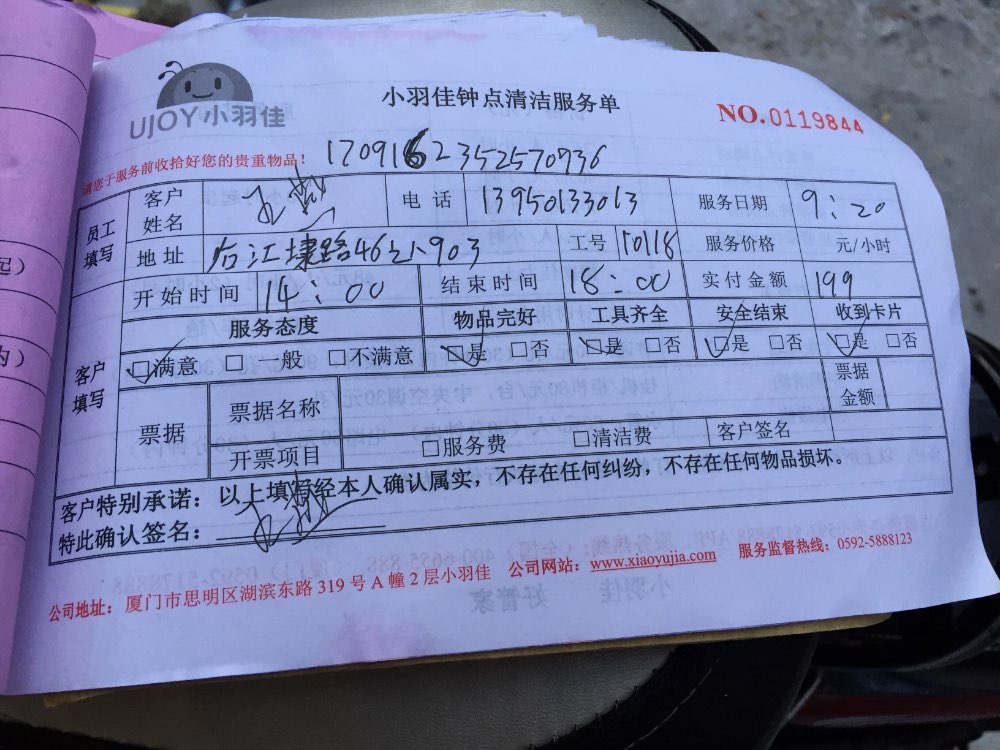 UJOY小羽佳
小羽佳钟点清洁服务单
NO.0119844
请您于服务前收拾好您的贵重物品！
1709162352570736
员工填写 客户姓名 电话 13950133013 服务日期 9：20
地址 后江埭路46之1 903 工号 10118 服务价格 元/小时
开始时间 14：00 结束时间 18：00 实付金额 199
客户填写 服务态度 物品完好 工具齐全 安全结束 收到卡片
□满意 □一般 □不满意 □是 □否 □是 □否 □是 □否 □是 □否
票据 票据名称 票据金额
开票项目 □服务费 □清洁费 客户签名
客户特别承诺：以上填写经本人确认属实，不存在任何纠纷，不存在任何物品损坏。
特此确认签名：
公司地址：厦门市思明区湖滨东路319号A幢2层小羽佳 公司网站：www.xiaoyujia.com 服务监督热线：0592-5888123